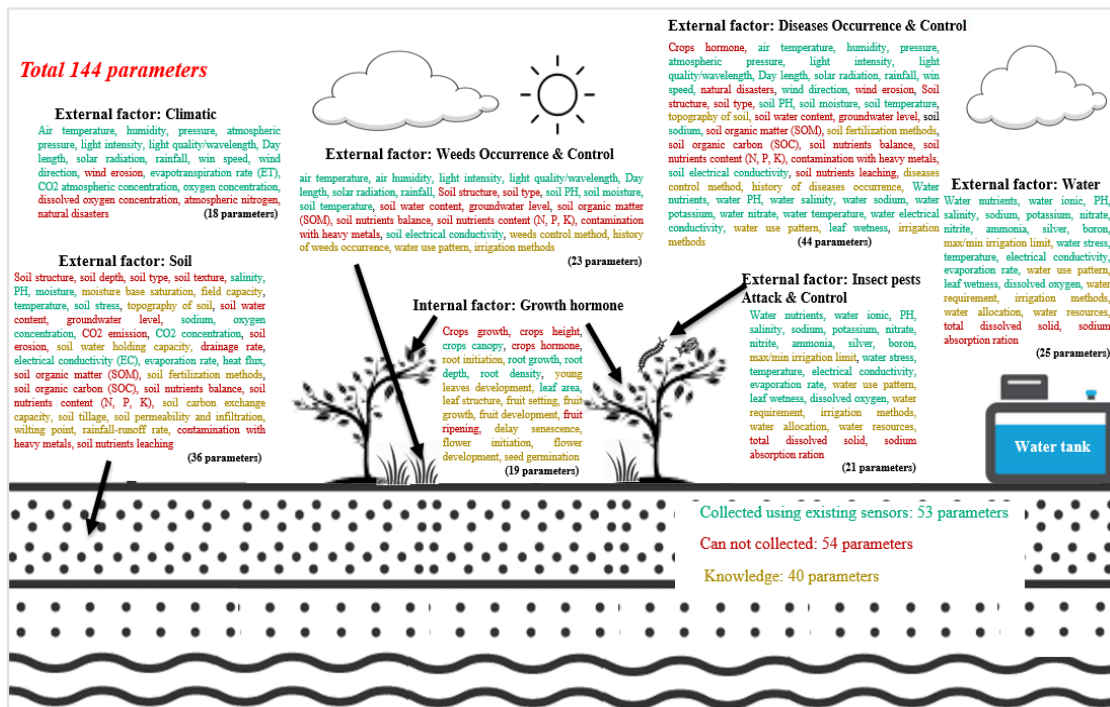 Total 144 parameters
External factor: Climatic
Air temperature, humidity, pressure, atmospheric
pressure, light intensity, light quality/wavelength, Day
length, solar radiation, rainfall, win speed, wind
direction, wind erosion, evapotranspiration rate (ET),
CO2 atmospheric concentration, oxygen concentration,
dissolved oxygen concentration, atmospheric nitrogen,
natural disasters
(18 parameters)
External factor: Soil
Soil structure, soil depth, soil type, soil texture, salinity,
PH, moisture, moisture base saturation, field capacity,
temperature, soil stress, topography of soil, soil water
content, groundwater level, sodium, oxygen
concentration, CO2 emission, CO2 concentration, soil
erosion, soil water holding capacity, drainage rate,
electrical conductivity (EC), evaporation rate, heat flux,
soil organic matter (SOM), soil fertilization methods,
soil organic carbon (SOC), soil nutrients balance, soil
nutrients content (N, P, K), soil carbon exchange
capacity, soil tillage, soil permeability and infiltration,
wilting point, rainfall-runoff rate, contamination with
heavy metals, soil nutrients leaching
(36 parameters)
External factor: Weeds Occurrence & Control
air temperature, air humidity, light intensity, light quality/wavelength, Day
length, solar radiation, rainfall, Soil structure, soil type, soil PH, soil moisture,
soil temperature, soil water content, groundwater level, soil organic matter
(SOM), soil nutrients balance, soil nutrients content (N, P, K), contamination
with heavy metals, soil electrical conductivity, weeds control method, history
of weeds occurrence, water use pattern, irrigation methods
(23 parameters)
Internal factor: Growth hormone
Crops growth, crops height,
crops canopy, crops hormone,
root initiation, root growth, root
depth, root density, young
leaves development, leaf area,
leaf structure, fruit setting, fruit
growth, fruit development, fruit
ripening, delay senescence,
flower initiation, flower
development, seed germination
(19 parameters)
External factor: Diseases Occurrence & Control
Crops hormone, air temperature, humidity, pressure,
atmospheric pressure, light intensity, light
quality/wavelength, Day length, solar radiation, rainfall, win
speed, natural disasters, wind direction, wind erosion, Soil
structure, soil type, soil PH, soil moisture, soil temperature,
topography of soil, soil water content, groundwater level, soil
sodium, soil organic matter (SOM), soil fertilization methods,
soil organic carbon (SOC), soil nutrients balance, soil
nutrients content (N, P, K), contamination with heavy metals,
soil electrical conductivity, soil nutrients leaching, diseases
control method, history of diseases occurrence, Water
nutrients, water PH, water salinity, water sodium, water
potassium, water nitrate, water temperature, water electrical
conductivity, water use pattern, leaf wetness, irrigation
methods
(44 parameters)
External factor: Insect pests
Attack & Control
Water nutrients, water ionic, PH,
salinity, sodium, potassium, nitrate,
nitrite, ammonia, silver, boron,
max/min irrigation limit, water stress,
temperature, electrical conductivity,
evaporation rate, water use pattern,
leaf wetness, dissolved oxygen, water
requirement, irrigation methods,
water allocation, water resources,
total dissolved solid, sodium
absorption ration
(21 parameters)
External factor: Water
Water nutrients, water ionic, PH,
salinity, sodium, potassium, nitrate,
nitrite, ammonia, silver, boron,
max/min irrigation limit, water stress,
temperature, electrical conductivity,
evaporation rate, water use pattern,
leaf wetness, dissolved oxygen, water
requirement, irrigation methods,
water allocation, water resources,
total dissolved solid, sodium
absorption ration
(25 parameters)
Water tank
Collected using existing sensors: 53 parameters
Can not collected: 54 parameters
Knowledge: 40 parameters